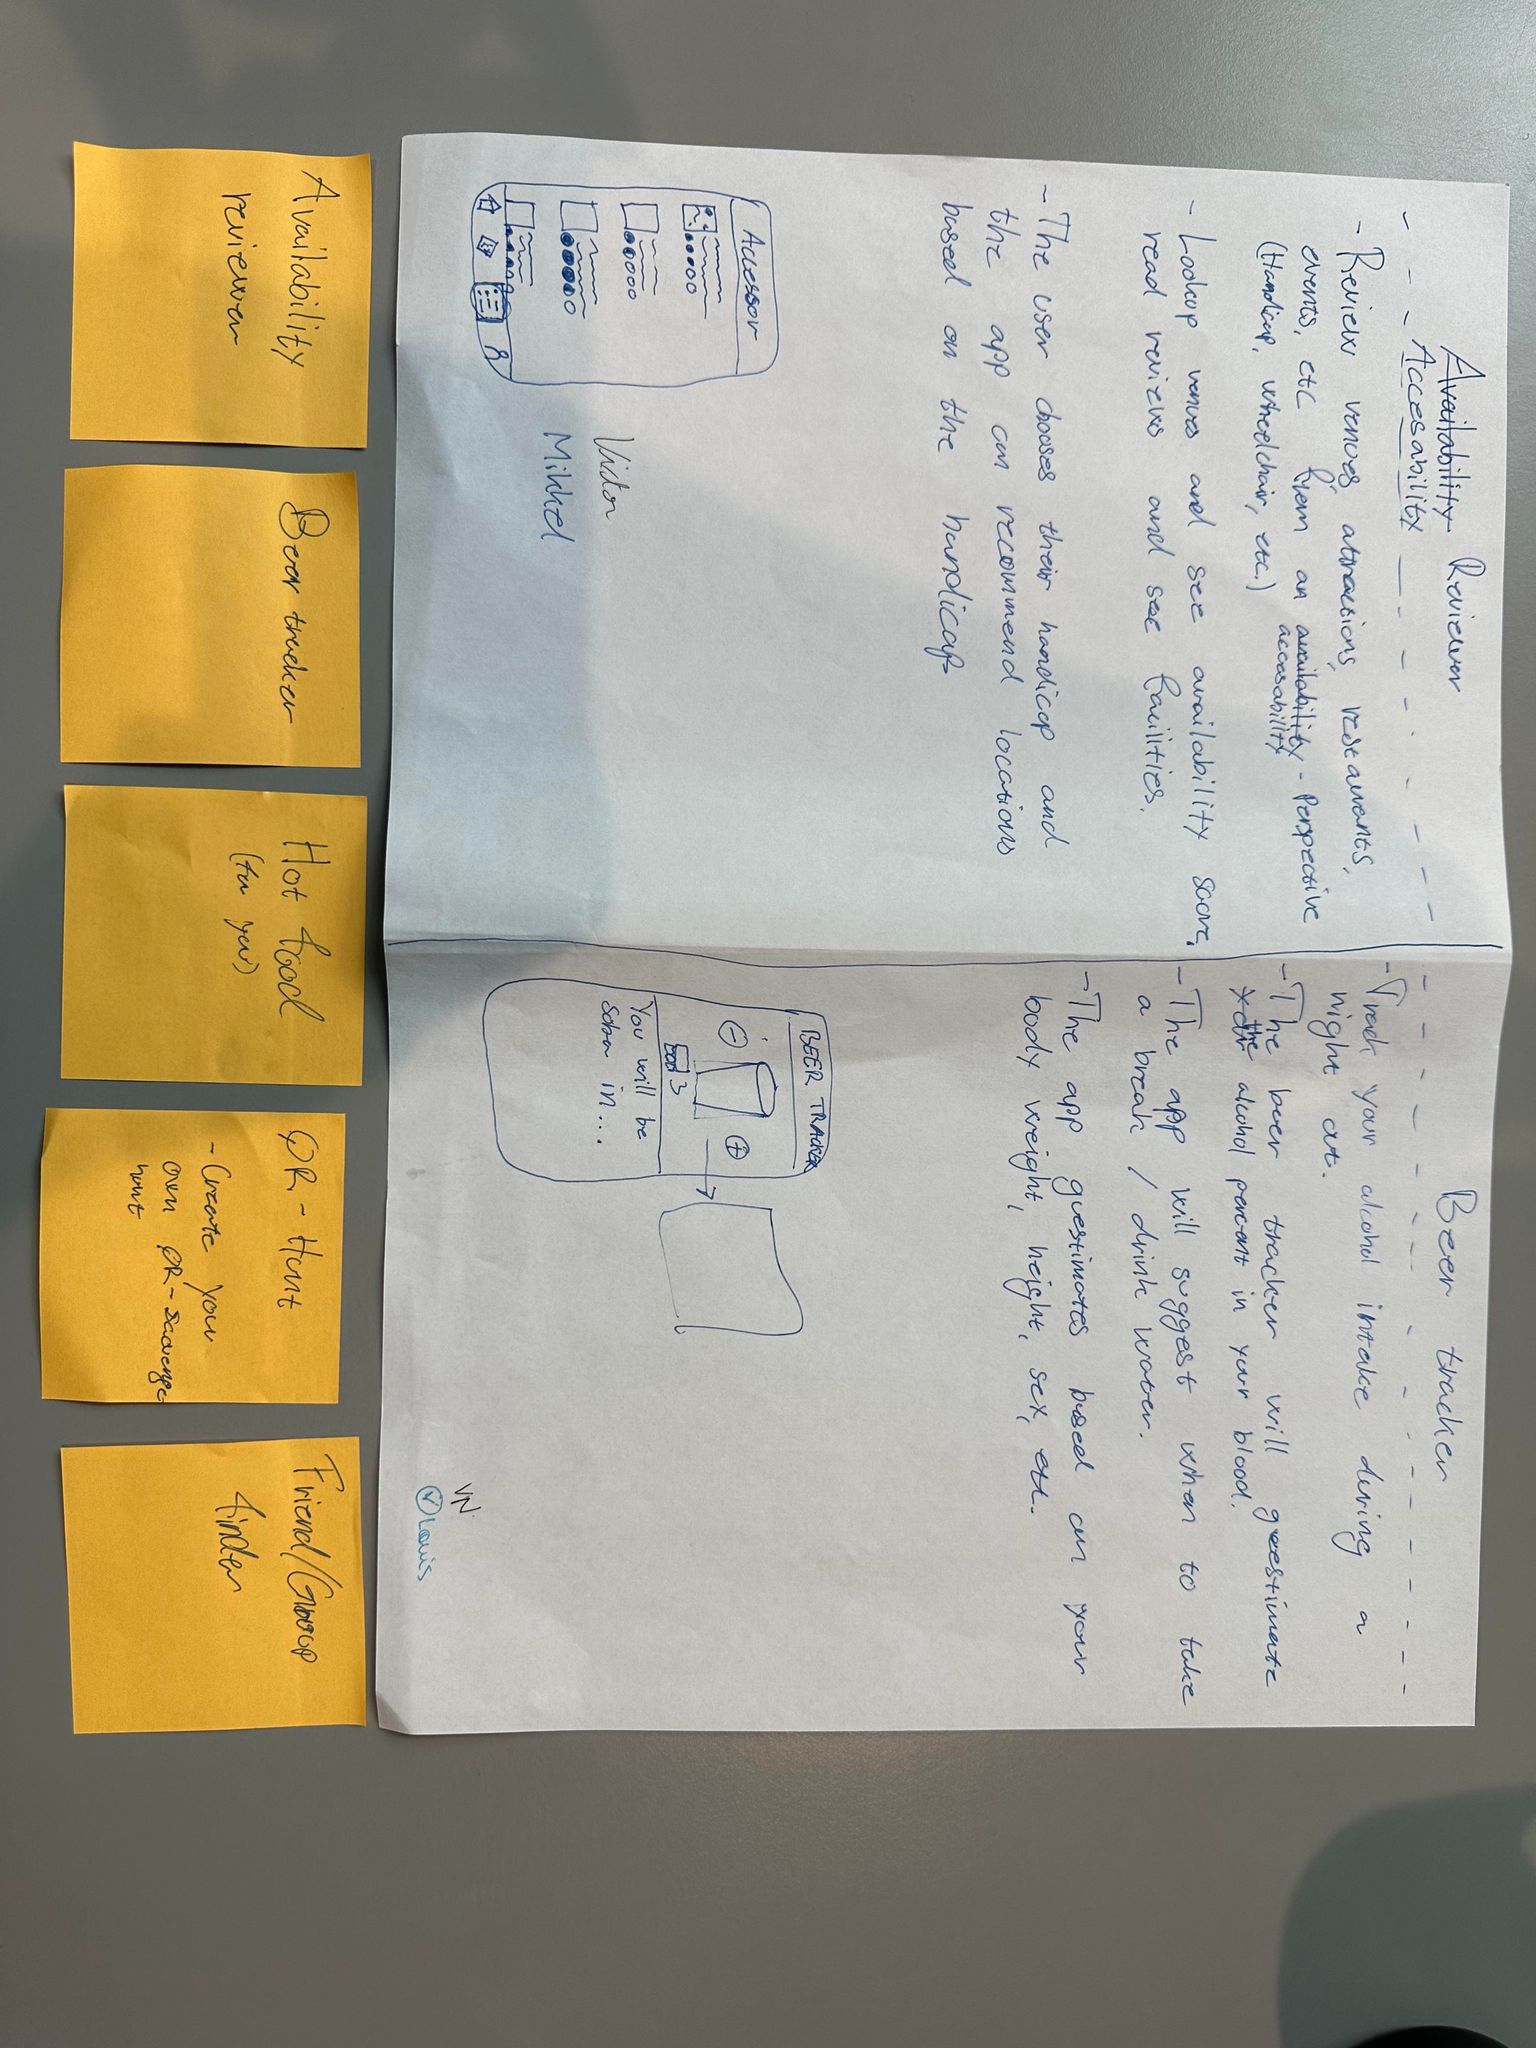 Availability Reviewer
Accesability
- Review venues, attractions, restaurants,
events, etc from an availability - Perspective
accesability
(Handicap, wheelchair, etc.)
- Lookup venues and see availability score,
read reviews and see facilities.
- The user chooses their handicap and
the app can recommend locations
based on the handicap
Accessor
Victor
Mikkel
Beer tracker
- Track your alcohol intake during a
night out.
- The beer tracker will guestimate
the alcohol percent in your blood.
- The app will suggest when to take
a break / drink water.
- The app guestimates based on your
body weight, height, sex, etc.
BEER TRACKER
- +
3
You will be
sober in...
VN
Louis
Availability
reviewer
Beer tracker
Hot food
(for you)
QR - Hunt
- Create your
own QR-Scavenge
hunt
Friend/Group
finder